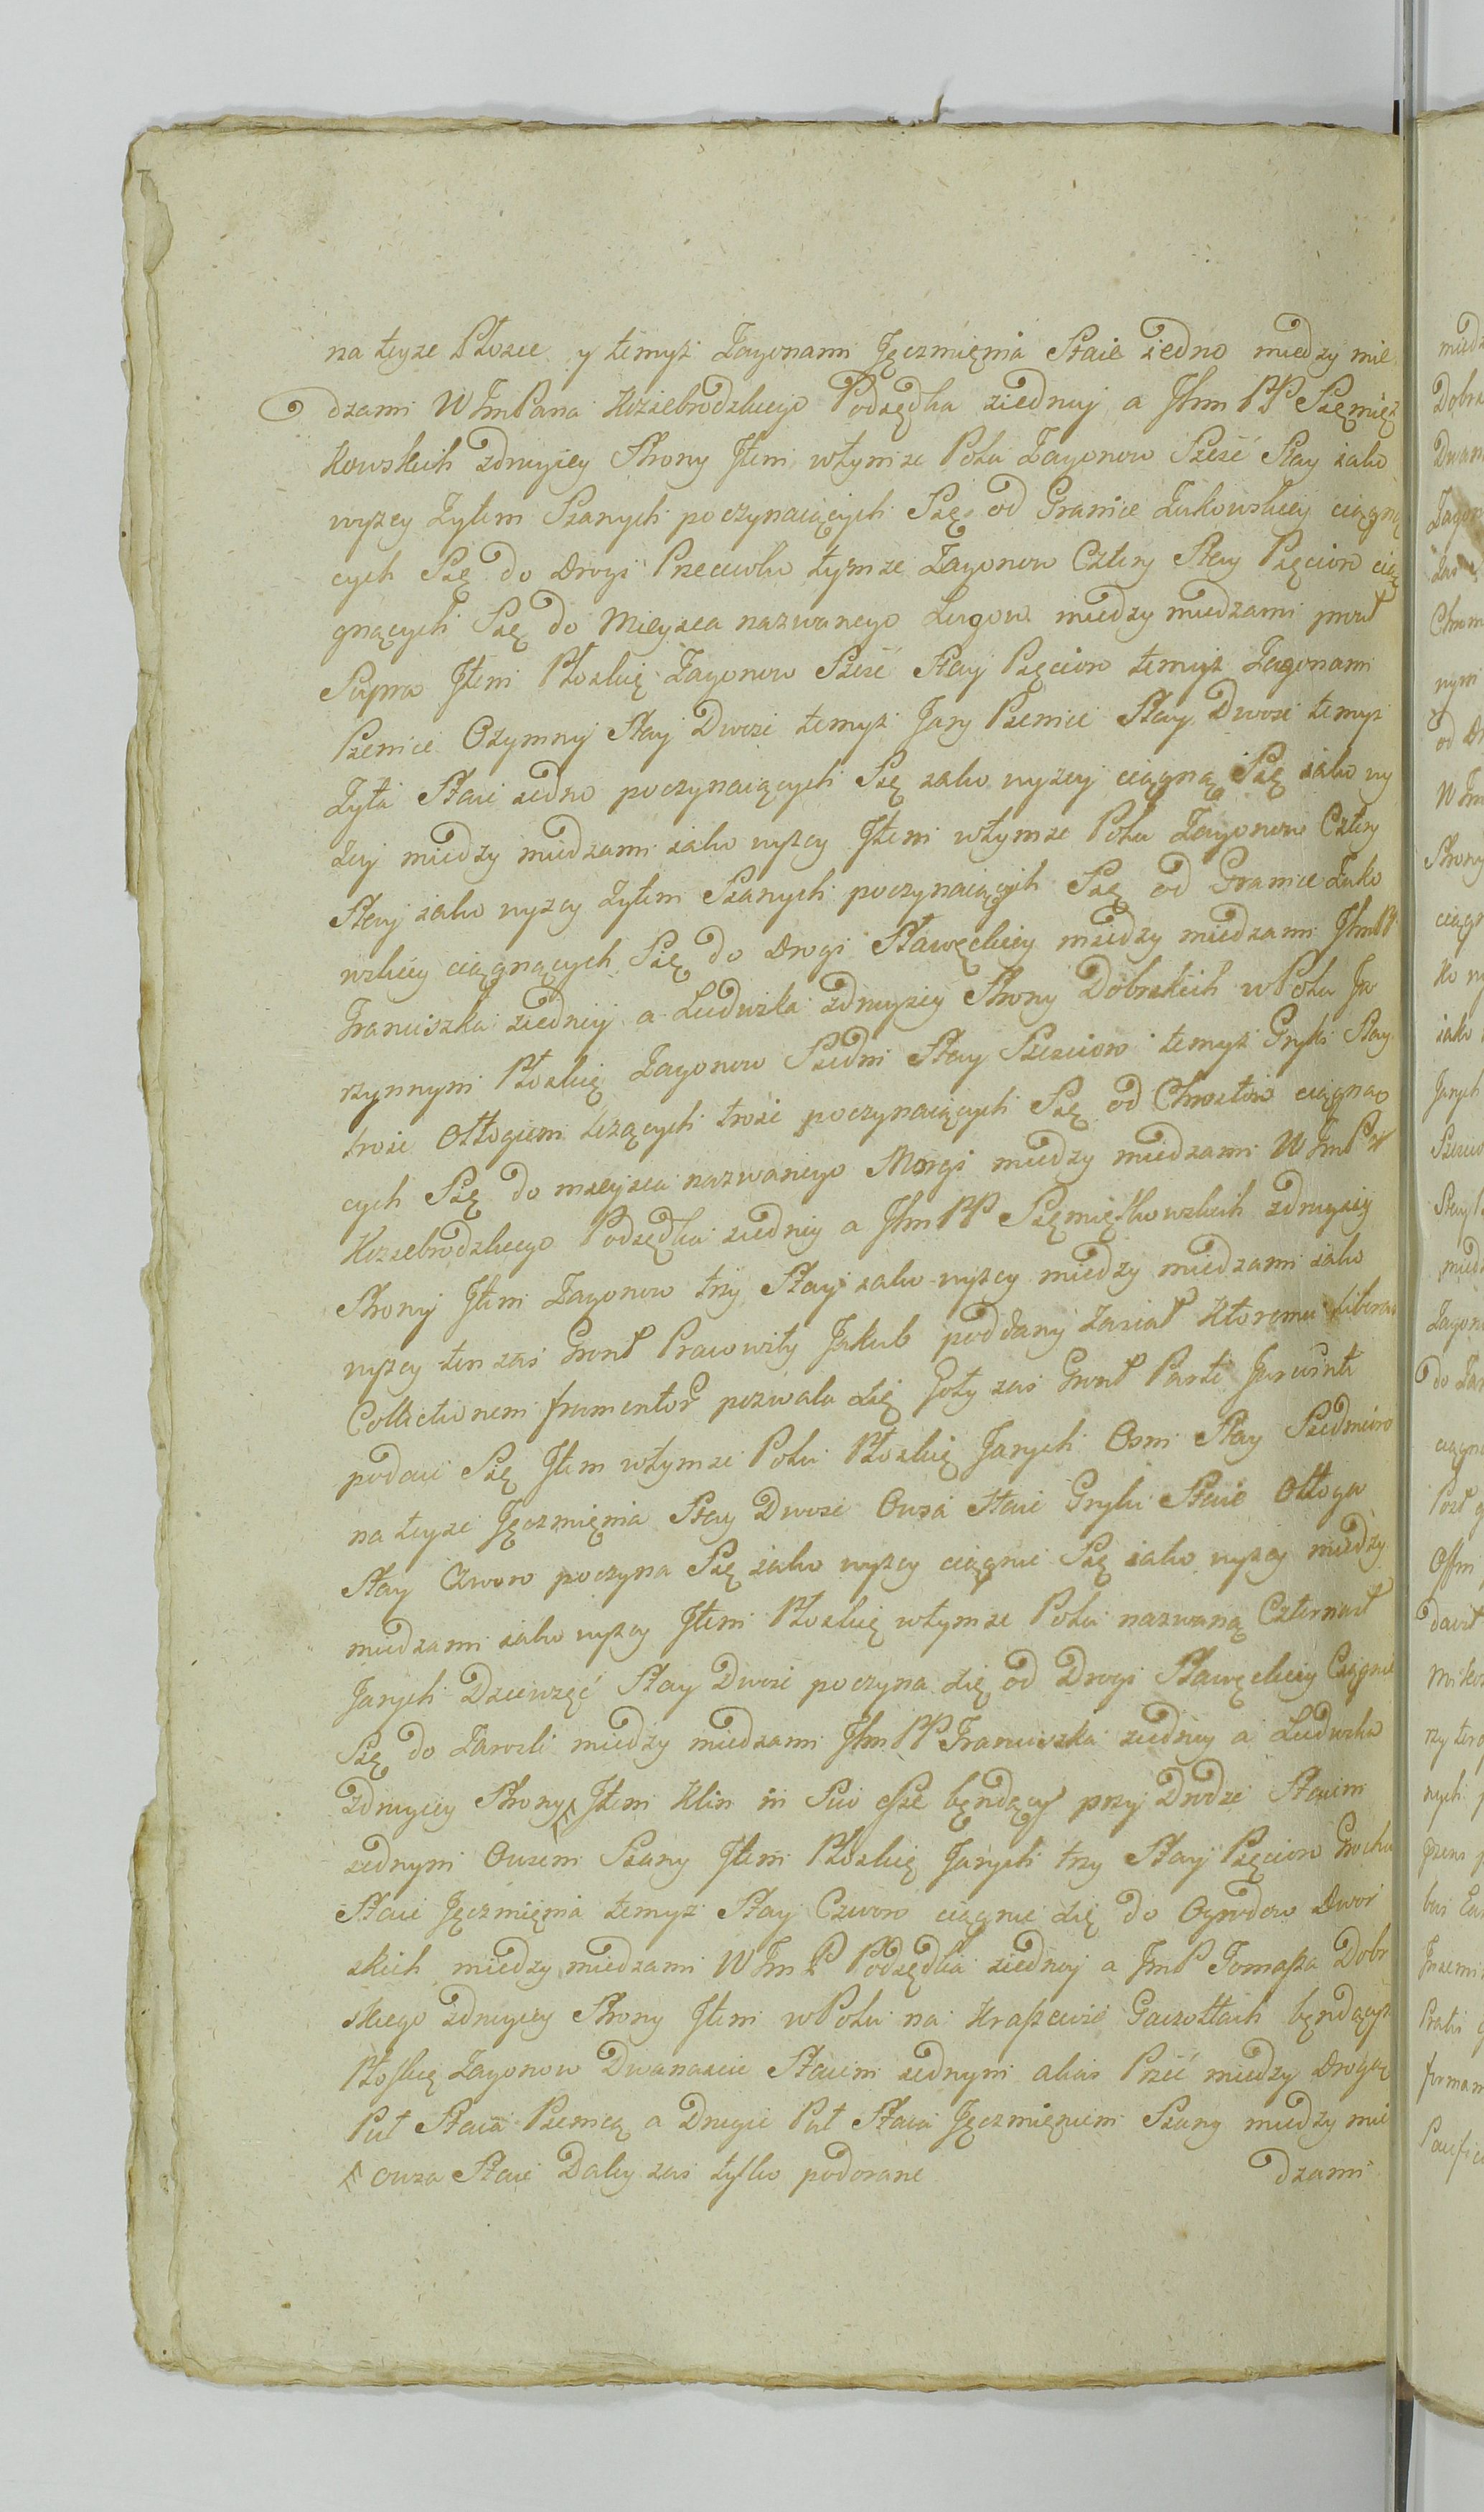 na teyze Płosce y temyz Zagonami Jęczmięnia Staie iedno miedzy mie
dzami W JmPana Koziebrodzkiego Podsędka ziedney a Jhm PP Sięmięz
kowskich zdrugiey Strony Jtem wtymze Polu Zagonow Sześć Stay iako
wyzey Zytem Sianych poczynaiących Się od Granice Łukowskiey ciągną
cych Się do Drogi Przeciwko tymze Zagonow Cztery Stay Pięcioro cią
gnących Się do Mieysca nazwanego Ługow miedzy miedzami prout
Supra Jtem Płoskię Zagonow Sześć Stay Pięcioro temiz Zagonami
Psenice Ozymney Stay Dwoie temyz Jary Psenice Stay Dwoie temyz
Zyta Staie iedno poczynaiących Się iako wyzey ciągną Się iako wy
zey miedzy miedzami iako wyzey Jtem wtymze Polu Zagonow Cztery
Stay iako wyzey Zytem Sianych poczynaiących Się od Granice Łuko
wskiey ciągnących Się do Drogi Sławęckiey miedzy miedzami JhmPP
Franciszka ziedney a Ludwika zdrugiey Strony Dobrskich wPolu Ja
rzynnym Płoskię Zagonow Siedm Stay Sześcioro temyz Gryki Stay
troie Otłogiem lezących troie poczynaiących Się od Chrostow ciągnąo
cych Się do mieysca nazwanego Morgi miedzy miedzami W JmP
Koziebrodzkiego Podsędka ziedney a Jhm PP Sięmięskowskich zdrugiey
Strony Jtem Zagonow trzy Stay iako wyzey miedzy miedzami iako
wyzey ten zas Grunt Pracowity Jakub poddany Zasiał Ktoremu liberam
Collectionem frumentor pozwala się Goły zas Grunt
podaie Się Jtem wtymze Polu Płoskię Jarych Osm Stay Siedmioro
na teyze Jęczmięnia Stay Dwoie Owsa Staie Gryki Staie Otłogu
Stay Czworo poczyna Się iako wyzey ciągnie Się iako wyzey miedzy
miedzami iako wyzey Jtem Płoskię wtymze Polu nazwaną
Jarych Dziewięć Stay Dwoie poczyna się od Drogi Sławęckiey Ciągnie
Się do Zarośli miedzy miedzami Jhm PP Franciszka ziedney a Ludwika
zdrugiey Strony Jtem Klin in Suo esse będący przy Drodze Staiem
iednym Owsem Siany Jtem Płoskię Jarych trzy Stay Pięcioro Grochu
Staie Jęczmięnia temyz Stay Czworo ciągnie się do Ogrodow Dwor
skich miedzy miedzami W Jm P Podsędka ziedney a JmP Tomasza Dobr
skiego zdrugiey Strony Jtem wPolu na będących
Płoskię Zagonow Dwanascie Staiem iednym alias miedzy Drogą
Puł Staia Psenicą a Drugie Puł Staia Jęczmięniem Siany miedzy mie
owsa Staie Daley zas tylko podorane dzami